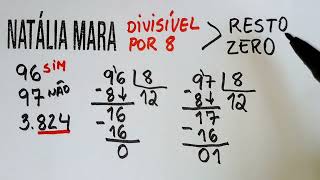 NATÁLIA MARA DIVISÍVEL POR 8 > RESTO ZERO
96 SIM
97 NÃO
3.824
96 8
-8 12
16
-16
0
97 8
-8 12
17
-16
01